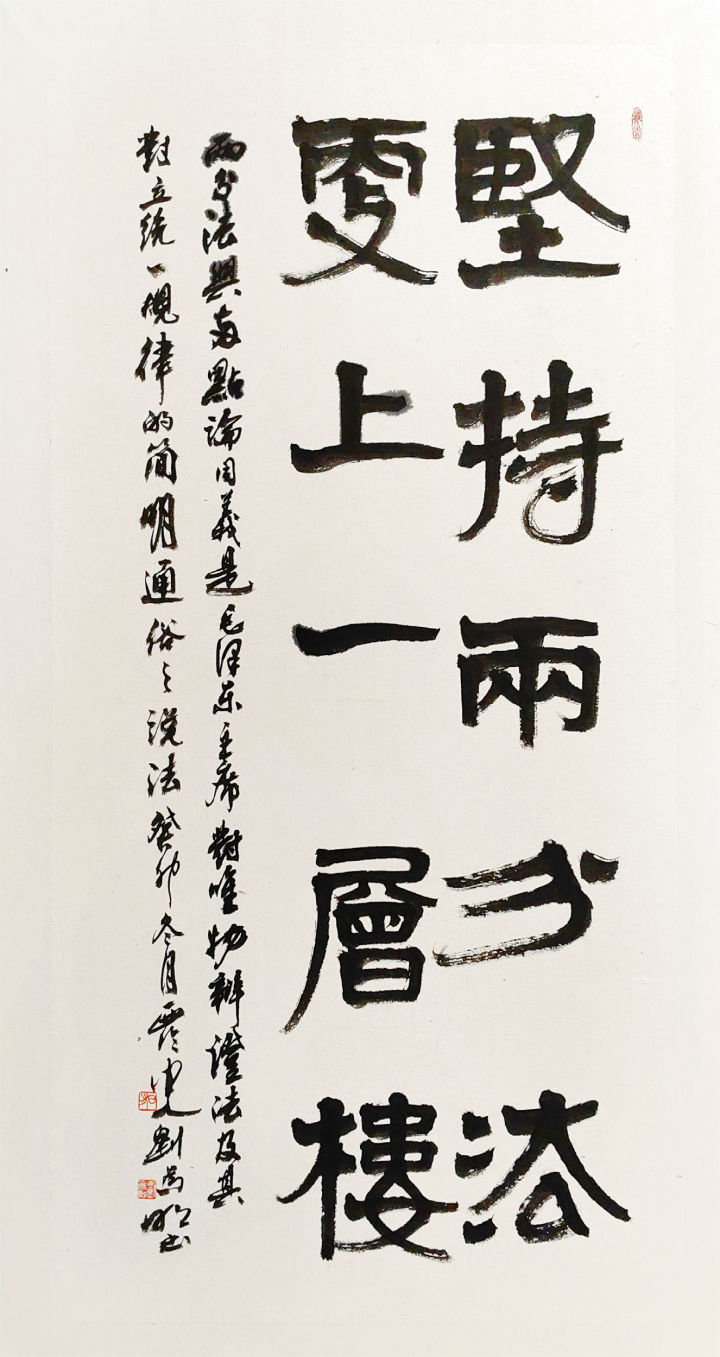 堅持兩分法
更上一層樓
两分法與两點論同義是毛泽东主席對唯物辯證法及其
對立統一規律的简明通俗之説法癸卯冬月劉尚书